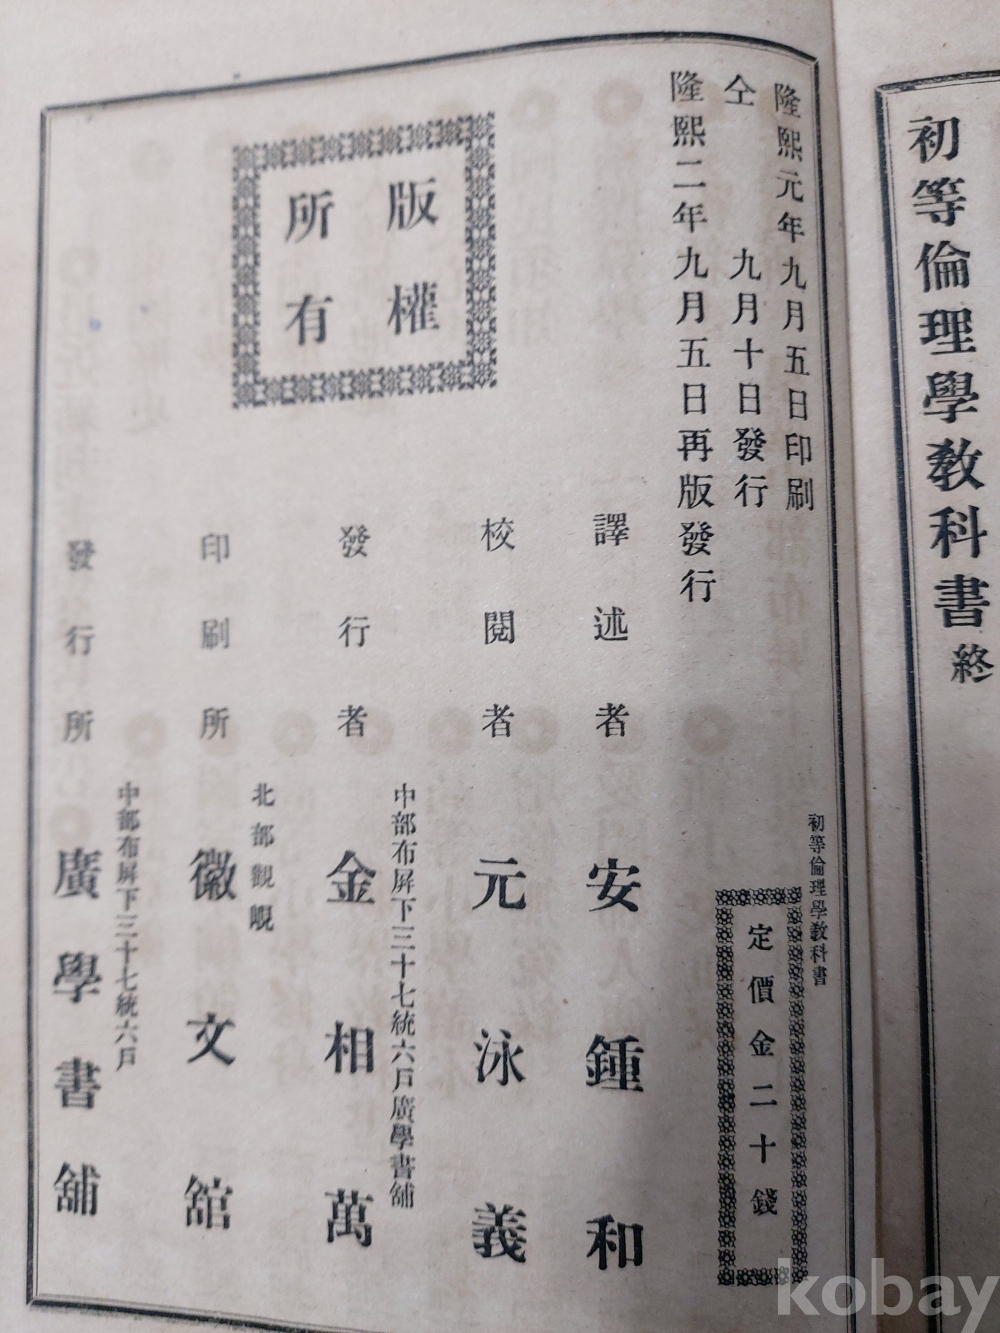 初等倫理學教科書 終
隆熙元年九月五日印刷
仝 九月十日發行
隆熙二年九月五日再版發行
版權
所有
初等倫理學教科書
定價金二十錢
譯述者 安鍾和
校閱者 元泳義
中部布屏下三十七統六戶廣學書舖
發行者 金相萬
北部觀峴
印刷所 徽文舘
中部布屏下三十七統六戶
發行所 廣學書舖
kobay